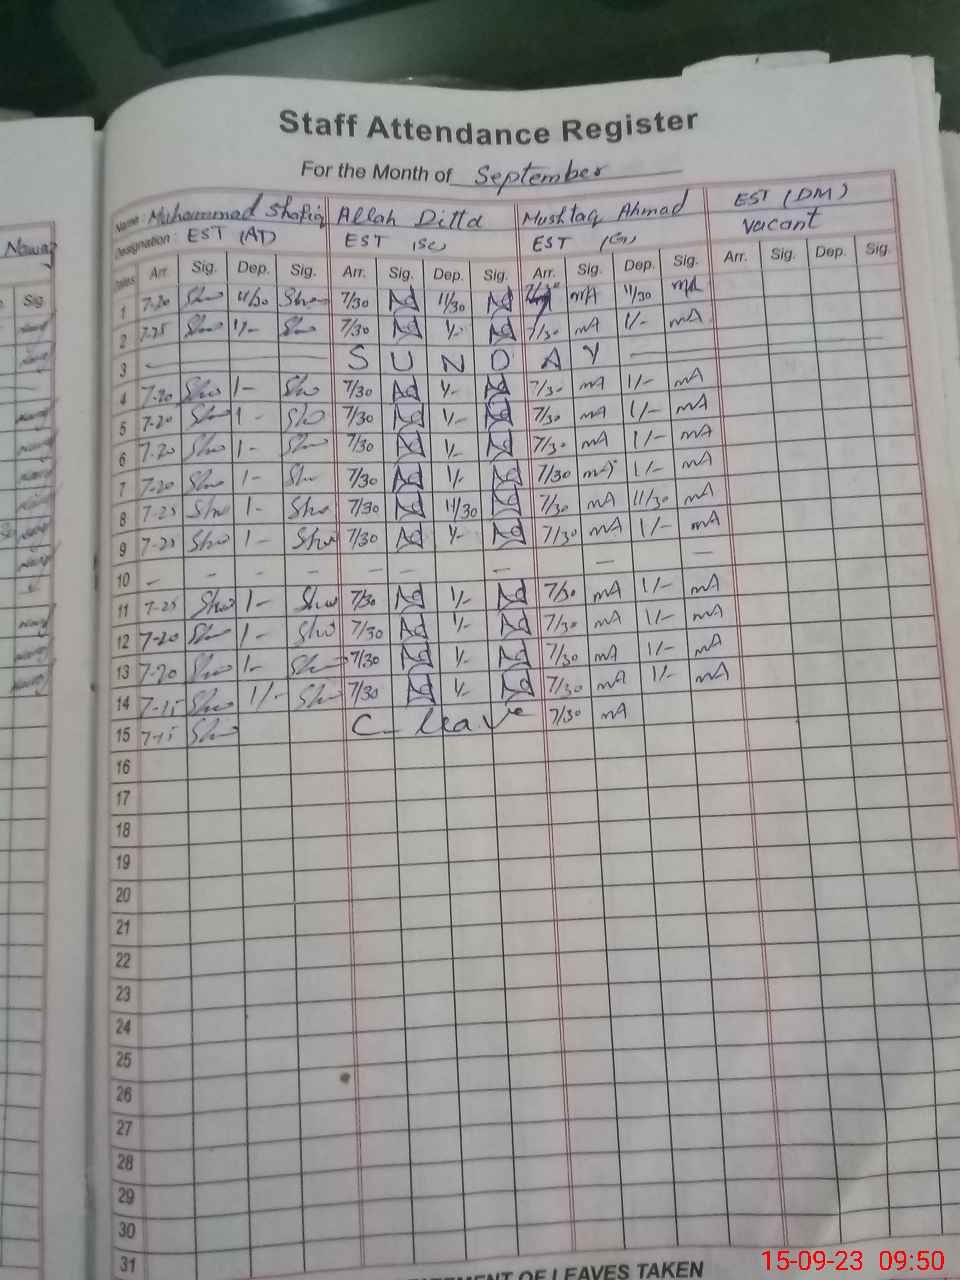 Staff Attendance Register
For the Month of September
Name: Muhammad Shafiq Allah Ditta Mushtaq Ahmad EST (DM)
Designation: EST (AT) EST (SC) EST Vacant
Dates Arr. Sig. Dep. Sig. Arr. Sig. Dep. Sig. Arr. Sig. Dep. Sig. Arr. Sig. Dep. Sig.
1 7-20 Sho 11/30 Sho 7/30 11/30 7/30 mA 11/30 mA
2 7-25 Sho 1/- Sho 7/30 1/- 7/30 mA 1/- mA
3 S U N D A Y
4 7-20 Sho 1- Sho 7/30 1/- 7/30 mA 1/- mA
5 7-20 Sho 1- Sho 7/30 1/- 7/30 mA 1/- mA
6 7-20 Sho 1- Sho 7/30 1/- 7/30 mA 1/- mA
7 7-20 Sho 1- Sho 7/30 1/- 7/30 mA 1/- mA
8 7-25 Sho 1- Sho 7/30 11/30 7/30 mA 11/30 mA
9 7-25 Sho 1- Sho 7/30 1/- 7/30 mA 1/- mA
10 - - - - - - - - -
11 7-25 Sho 1- Sho 7/30 1/- 7/30 mA 1/- mA
12 7-20 Sho 1- Sho 7/30 1/- 7/30 mA 1/- mA
13 7-20 Sho 1- Sho 7/30 1/- 7/30 mA 1/- mA
14 7-15 Sho 1/- Sho 7/30 1/- 7/30 mA 1/- mA
15 7-15 Sho C-leave 7/30 mA
16
17
18
19
20
21
22
23
24
25
26
27
28
29
30
31
OF LEAVES TAKEN
Nawaz
Sig.
15-09-23 09:50